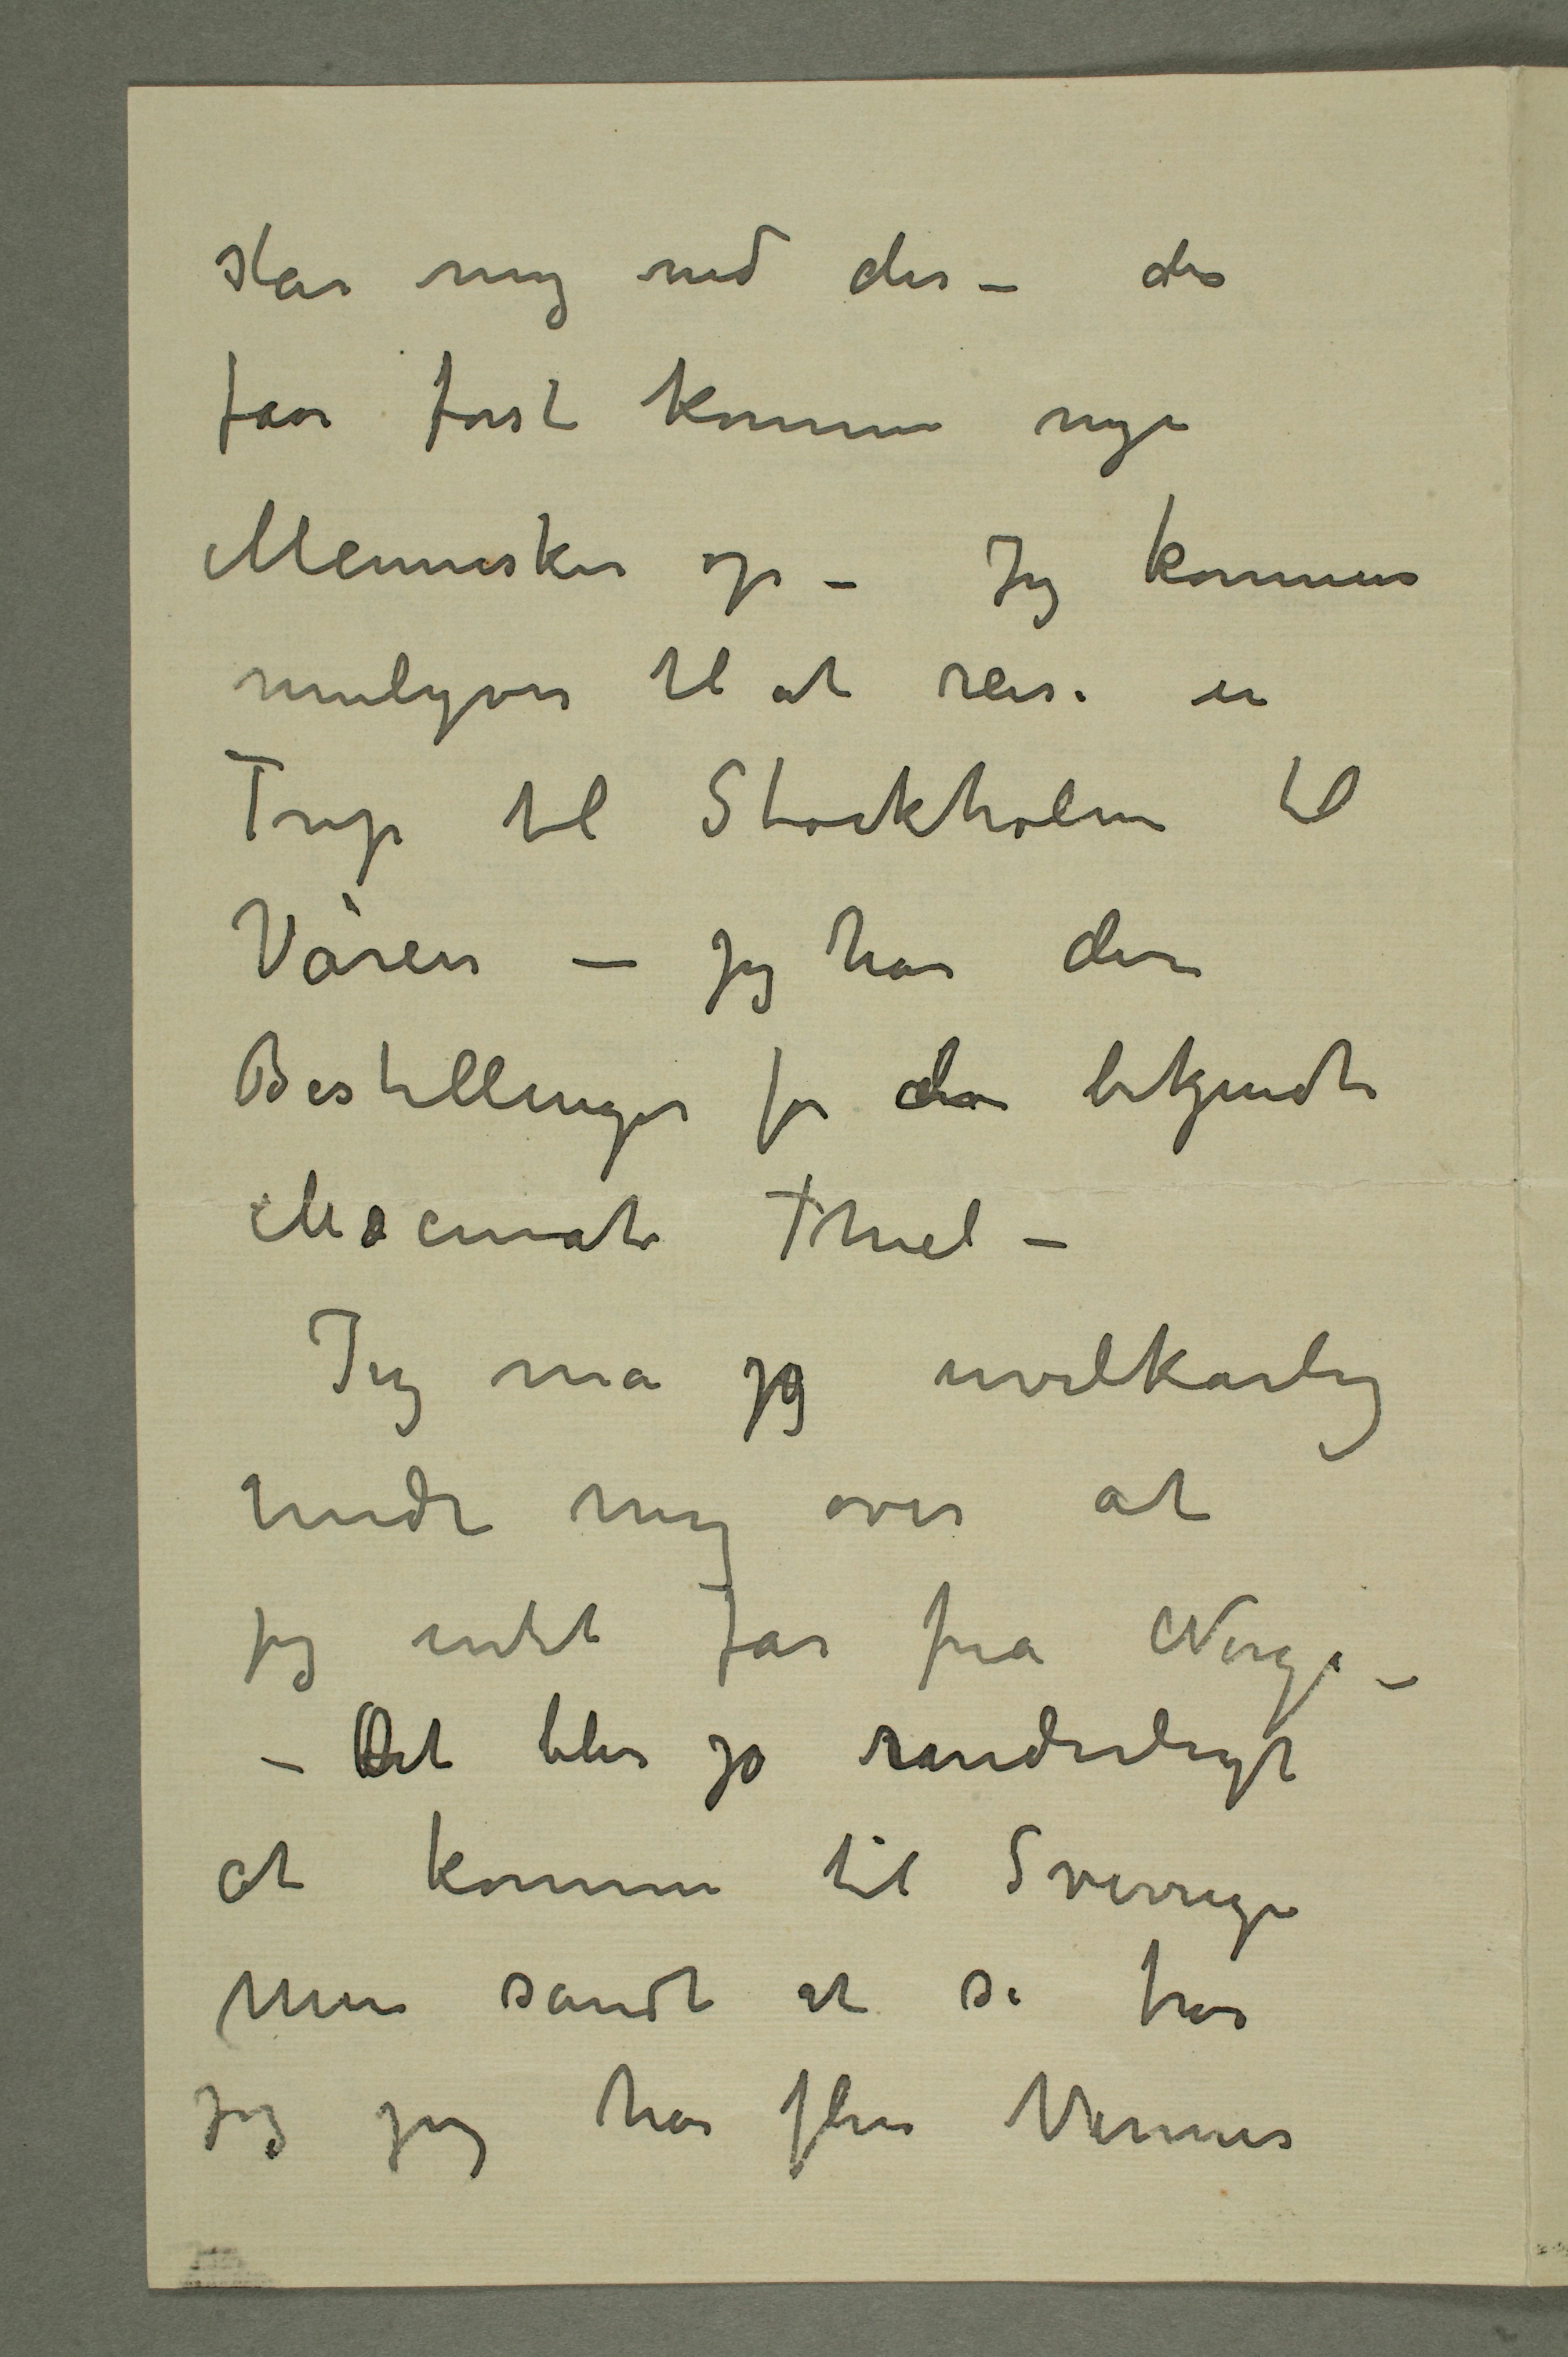 slår mig ned der – der
faar først komme nye
Mennesker op – Jeg kommer
muligvis til at reise en
Trip til Stockholm til
Våren – jeg har der
Bestillinger for den bekjendte
Mæcenate Thiel –
Jeg må jo uvilkårlig
undre mig over at
jeg intet får fra Norge –
– Det blir jo sandsynligt
at komme til Sverrige
men sandt at si har
jeg jeg har flere Venner